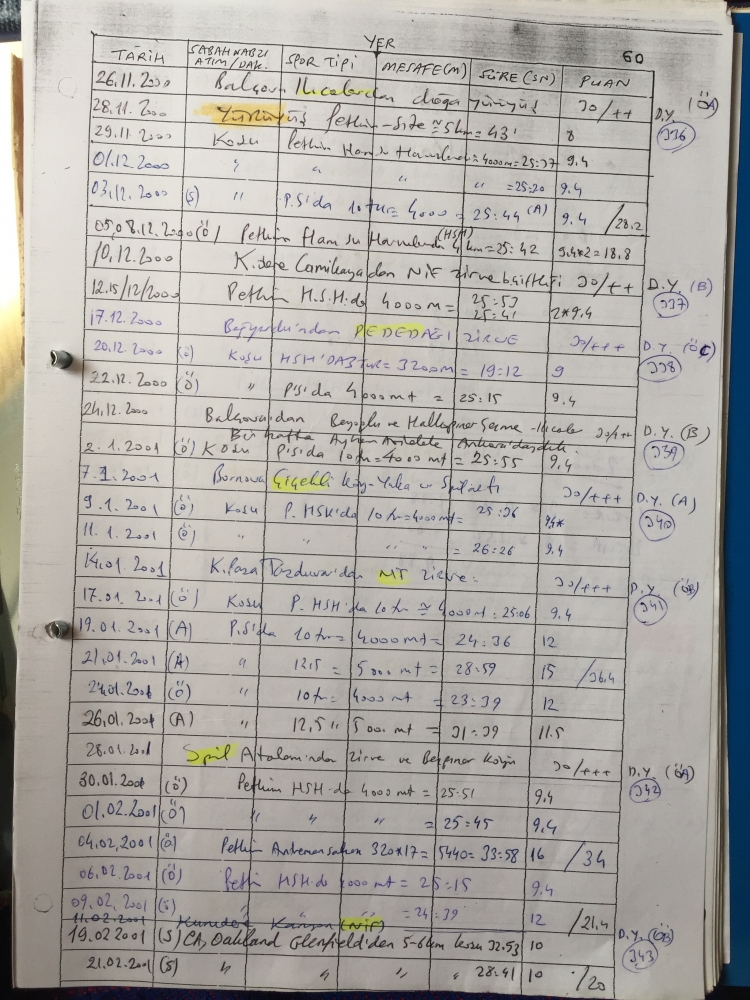 YER
60
TARİH SABAH NABZI ATIM/DAK. SPOR TİPİ MESAFE(M) SÜRE(SN) PUAN
26.11.2000 Balçova Ilıcalardan doğa yürüyüş 30/++ D.Y. (ÖA)
28.11.2000 Yürüyüş Petkim-Site ≅ 5km = 43' 8 336
29.11.2000 Koşu Petkim Ham Su Havuzları 4000m = 25:37 9.4
01.12.2000 " " " " = 25:20 9.4
03.12.2000 (S) " P.Sida 10 tur = 4000 = 25:44 (A) 9.4 /28.2
05,08.12.2000 (Ö) Petkim Ham Su Havuzlarda (HSH) 4 km = 25:42 9.4*2=18.8
10.12.2000 K.dere Camikaya dan NİF zirve 30/++ D.Y. (B)
12.15/12/2000 Petkim H.S.H.da 4000m = 25:53 25:41 2*9.4 337
17.12.2000 DEDEDAĞI ZİRVE 30/+++ D.Y. (ÖC)
20.12.2000 (Ö) Koşu HSH'DA 8 tur = 3200m = 19:12 9 338
22.12.2000 (Ö) " Pisida 4000mt = 25:15 9.4
24.12.2000 Balçova'dan ve 30/++ D.Y. (B)
Bu hafta Ankaradaydık. 339
2.1.2001 (Ö) Koşu Pisida 10 tur = 4000 mt = 25:55 9.4
7.1.2001 Bornova Çiçekli Köy-Yaka 30/+++ D.Y. (A)
9.1.2001 (Ö) Koşu P. HSH'da 10 tur = 4000mt = 25:36 9.4* 340
11.1.2001 (Ö) " " " " = 26:26 9.4
14.01.2001 K.Paşa 'dan MT zirve. 30/+++ D.Y. (ÖB)
17.01.2001 (Ö) Koşu P. HSH'da 10 tur ≅ 4000mt = 25:06 9.4 341
19.01.2001 (A) P.Sida 10 tur = 4000mt = 24:36 12
21.01.2001 (A) " 12,5 = 5000 mt = 28:59 15 /36.4
24.01.2001 (Ö) " 10 tur = 4000 mt = 23:39 12
26.01.2001 (A) " 12,5 " 5000 mt = 31:39 11.5
28.01.2001 Spil Atalanından zirve ve Beşpınar köyü 30/+++ D.Y. (ÖA)
30.01.2001 (Ö) Petkim HSH-da 4000 mt = 25:51 9.4 342
01.02.2001 (Ö) " " " = 25:45 9.4
04.02.2001 (Ö) Petkim Antreman sahası 320*17 = 5440 = 33:58 16 /34
06.02.2001 (Ö) Petkim HSH-da 4000 mt = 25:15 9.4
09.02.2001 (S) " " = 24:39 12 /21.4
11.02.2001 Kurudere Kanyon (NİF) D.Y. (ÖB)
19.02.2001 (S) CA, Oakland Glenfield'den 5-6km koşu 32.53 10 343
21.02.2001 (S) " " " " 28:41 10 /20